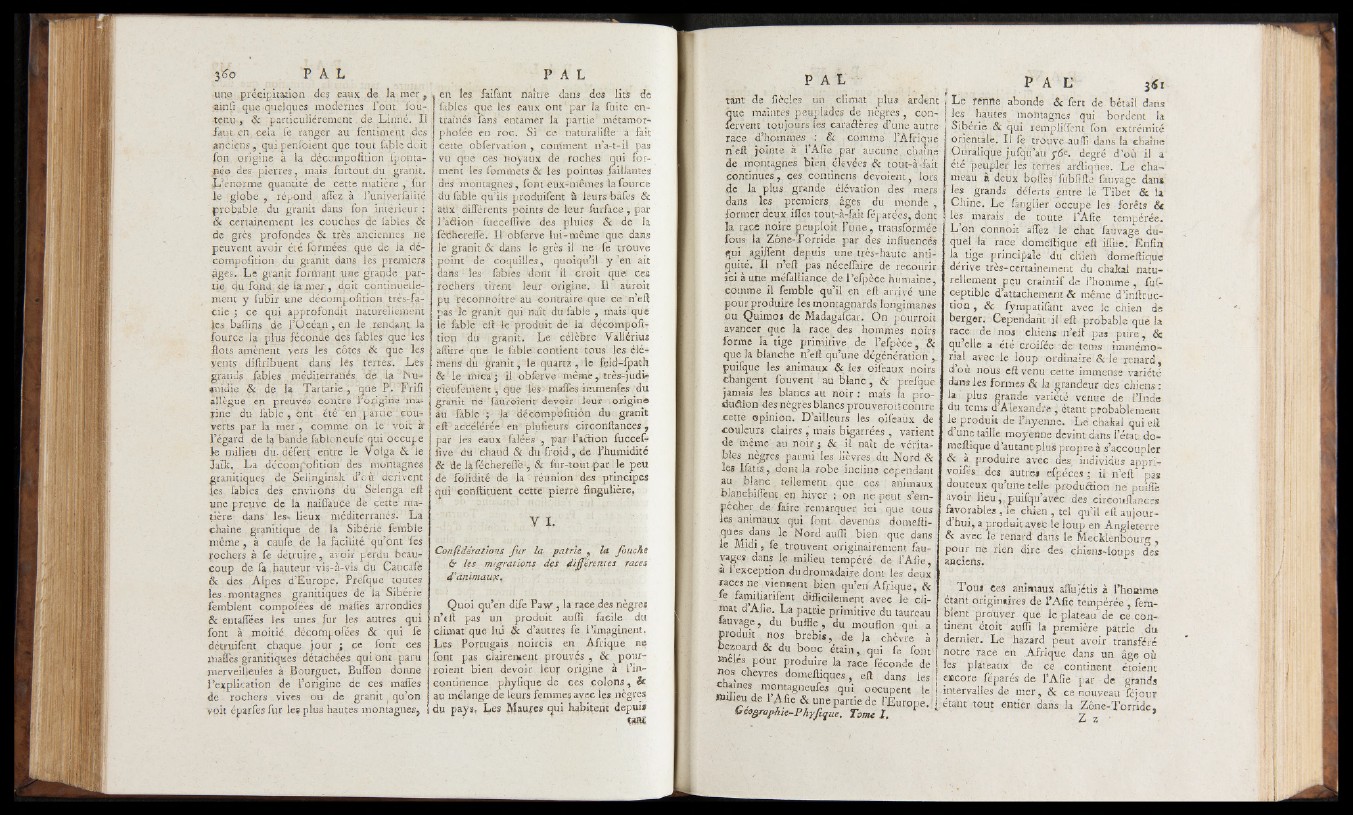 360 P A L
une précipitation des eaux de la mer,
ainsi que quelques modernes l'ont sou-
tenu, & particuliérement de Linné. Il
faut en cela se ranger au sentiment des
anciens, qui pensoient que tout sable doit
son origine à la décomposition sponta-
née des pierres, mais surtout du granit.
L'énorme quantité de cette matière, sur
le globe, répond assez à l'universalité
probable du granit dans son intérieur :
& certainement les couches de sables &
de grès profondes & très anciennes ne
peuvent avoir été formées que de la dé-
composition du granit dans les premiers
âges. Le granit formant une grande par-
tie du fond de la mer, doit continuelle-
ment y subir une décomposition très-fa-
cile ; ce qui approfondit naturellement
les bassins de l'Océan, en le rendant la
source la plus féconde des sables que les
flots amènent vers les côtes & que les
vents distribuent dans les terres. Les
grands sables méditerranés de la Nu-
midie & de la Tartarie, que P. Frisi
allègue en preuves contre l'origine ma-
rine du sable, ont été en partie cou-
verts par la mer, comme on le voit à
l'égard de la bande sabloneuse qui occupe
le milieu du désert entre le Volga & le
Jaïk. La décomposition des montagnes
granitiques de Selinginsk d'où dérivent
les sables des environs du Selenga est
une preuve de la naissance de cette ma-
tière dans les lieux méditerranés. La
chaîne granitique de la Sibérie semble
même, à cause de la facilité qu'ont ses
rochers à se détruire, avoir perdu beau-
coup de sa hauteur vis-à-vis du Caucase
& des Alpes d'Europe. Presque toutes
les montagnes granitiques de la Sibérie
semblent composées de masses arrondies
& entassées les unes sur les autres qui
sont à moitié décomposées & qui se
détruisent chaque jour ; ce sont ces
masses granitiques détachées qui ont paru
merveilleuses à Bourguet. Buffon donne
l'explication de l'origine de ces masses
de rochers vives ou de granit, qu'on
voit éparses sur les plus hautes montagnes,
P A L
en les faisant naître dans des lits de
sables que les eaux ont par la suite en-
traînés sans entamer la partie métamor-
phosée en roc. Si ce naturaliste a fait
cette observation, comment n'a-t-il pas
vu que ces noyaux de roches qui for-
ment les sommets & les pointes saillantes
des montagnes, sont eux-mêmes la source
du sable qu'ils produisent à leurs bases &
aux différents points de leur surface, par
l'action successive des pluies & de la
sécheresse. Il observe lui-même que dans
le granit & dans le grès il ne se trouve
point de coquilles, quoiqu'il y en ait
dans les sables dont il croit que ces
rochers tirent leur origine. Il auroit
pu reconnoître au contraire que ce n'est
pas le granit qui naît du sable, mais que
le sable est le produit de la décomposi-
tion du granit. Le célèbre Vallérius
assure que le sable contient tous les élé-
mens du granit, le quartz, le feld-spath
& le mica ; il observe même, très-judi-
cieusement, que les masses immenses du
granit ne sauroient devoir leur origine
au sable ; la décomposition du granit
est accélérée en plusieurs circonstances,
par les eaux salées, par l'action succes-
sive du chaud & du froid, de l'humidité
& de la sécheresse, & sur-tout par le peu
de solidité de la réunion des principes
qui constituent cette pierre singulière.
V I.
Considérations sur la patrie, la souche
& les migrations des différentes races
d'animaux.
Quoi qu'en dise Paw, la race des nègres
n'est pas un produit aussi facile du
climat que lui & d'autres se l'imaginent.
Les Portugais noircis en Afrique ne
sont pas clairement prouvés, & pour-
roient bien devoir leur origine à l'in-
continence physique de ces colons, &
au mélange de leurs femmes avec les nègres
du pays. Les Maures qui habitent depuis
tant
P A L
tant de siècles un climat plus ardent
que maintes peuplades de nègres, con-
servent toujours les caractères d'une autre
race d'hommes : & comme l'Afrique
n'est jointe à l'Asie par aucune chaîne
de montagnes bien élevées & tout-à-fait
continues, ces continens devoient, lors
de la plus grande élévation des mers
dans les premiers âges du monde,
former deux isles tout-à-fait séparées, dont
la race noire peuploit l'une, transformée
sous la Zône-Torride par des influences
qui agissent depuis une très-haute anti-
quité. Il n'est pas nécessaire de recourir
ici à une mésalliance de l'espèce humaine,
comme il semble qu'il en est arrivé une
pour produire les montagnards longimanes
ou Quimos de Madagascar. On pourroit
avancer que la race des hommes noirs
forme la tige primitive de l'espèce, &
que la blanche n'est qu'une dégénération,
puisque les animaux & les oiseaux noirs
changent souvent au blanc, & presque
jamais les blancs au noir : mais la pro-
duction des nègres blancs prouveroit contre
cette opinion. D'ailleurs les oiseaux de
couleurs claires, mais bigarrées, varient
de même au noir ; & il naît de vérita-
bles nègres parmi les lièvres du Nord &
les Isatis, dont la robe incline cependant
au blanc tellement que ces animaux
blanchissent en hiver : on ne peut s'em-
pêcher de faire remarquer ici que tous
les animaux qui sont devenus domesti-
ques dans le Nord aussi bien que dans
le Midi, se trouvent originairement sau-
vages dans le milieu tempéré de l'Asie,
à l'exception du dromadaire dont les deux
races ne viennent bien qu'en Afrique, &
se familiarisent difficilement avec le cli-
mat d'Asie. La patrie primitive du taureau
sauvage, du buffle, du mouflon qui a
produit nos brebis, de la chèvre à
bezoard & du bouc étain, qui se sont
mêlés pour produire la race féconde de
nos chèvres domestiques, est dans les
chaînes montagneuses qui occupent le
milieu de l'Asie & une partie de l'Europe.
Géographie-Physique. Tome I.
P A L 361
Le renne abonde & sert de bétail dans
les hautes montagnes qui bordent la
Sibérie & qui remplissent son extrémité
orientale. Il se trouve aussi dans la chaîne
Ouralique jusqu'au 56e. degré d'où il a
été peupler les terres arctiques. Le cha-
meau à deux bosses subsiste sauvage dans
les grands déserts entre le Tibet & la
Chine. Le sanglier occupe les forêts &
les marais de toute l'Asie tempérée.
L'on connoît assez le chat sauvage du-
quel la race domestique est issue. Enfin
la tige principale du chien domestique
dérive très-certainement du chakal natu-
rellement peu craintif de l'homme, sus-
ceptible d'attachement & même d'instruc-
tion, & sympatisant avec le chien de
berger. Cependant il est probable que la
race de nos chiens n'est pas pure, &
qu'elle a été croisée de tems immémo-
rial avec le loup ordinaire & le renard,
d'où nous est venu cette immense variété
dans les formes & la grandeur des chiens :
la plus grande variété venue de l'Inde
du tems d'Alexandre, étant probablement
le produit de l'hyenne. Le chakal qui est
d'une taille moyenne devint dans l'état do-
mestique d'autant plus propre à s'accoupler
& à produire avec des individus appri-
voisés des autres espèces ; il n'est pas
douteux qu'une telle production ne puisse
avoir lieu, puisqu'avec des circonstances
favorables, le chien, tel qu'il est aujour-
d'hui, a produit avec le loup en Angleterre
& avec le renard dans le Mecklenbourg,
pour ne rien dire des chiens-loups des
anciens.
Tous ces animaux assujétis à l'homme
étant originaires de l'Asie tempérée, sem-
blent prouver que le plateau de ce con-
tinent étoit aussi la première patrie du
dernier. Le hazard peut avoir transféré
notre race en Afrique dans un âge où
les plateaux de ce continent étoient
encore séparés de l'Asie par de grands
intervalles de mer, & ce nouveau séjour
étant tout entier dans la Zône-Torride,
Z z